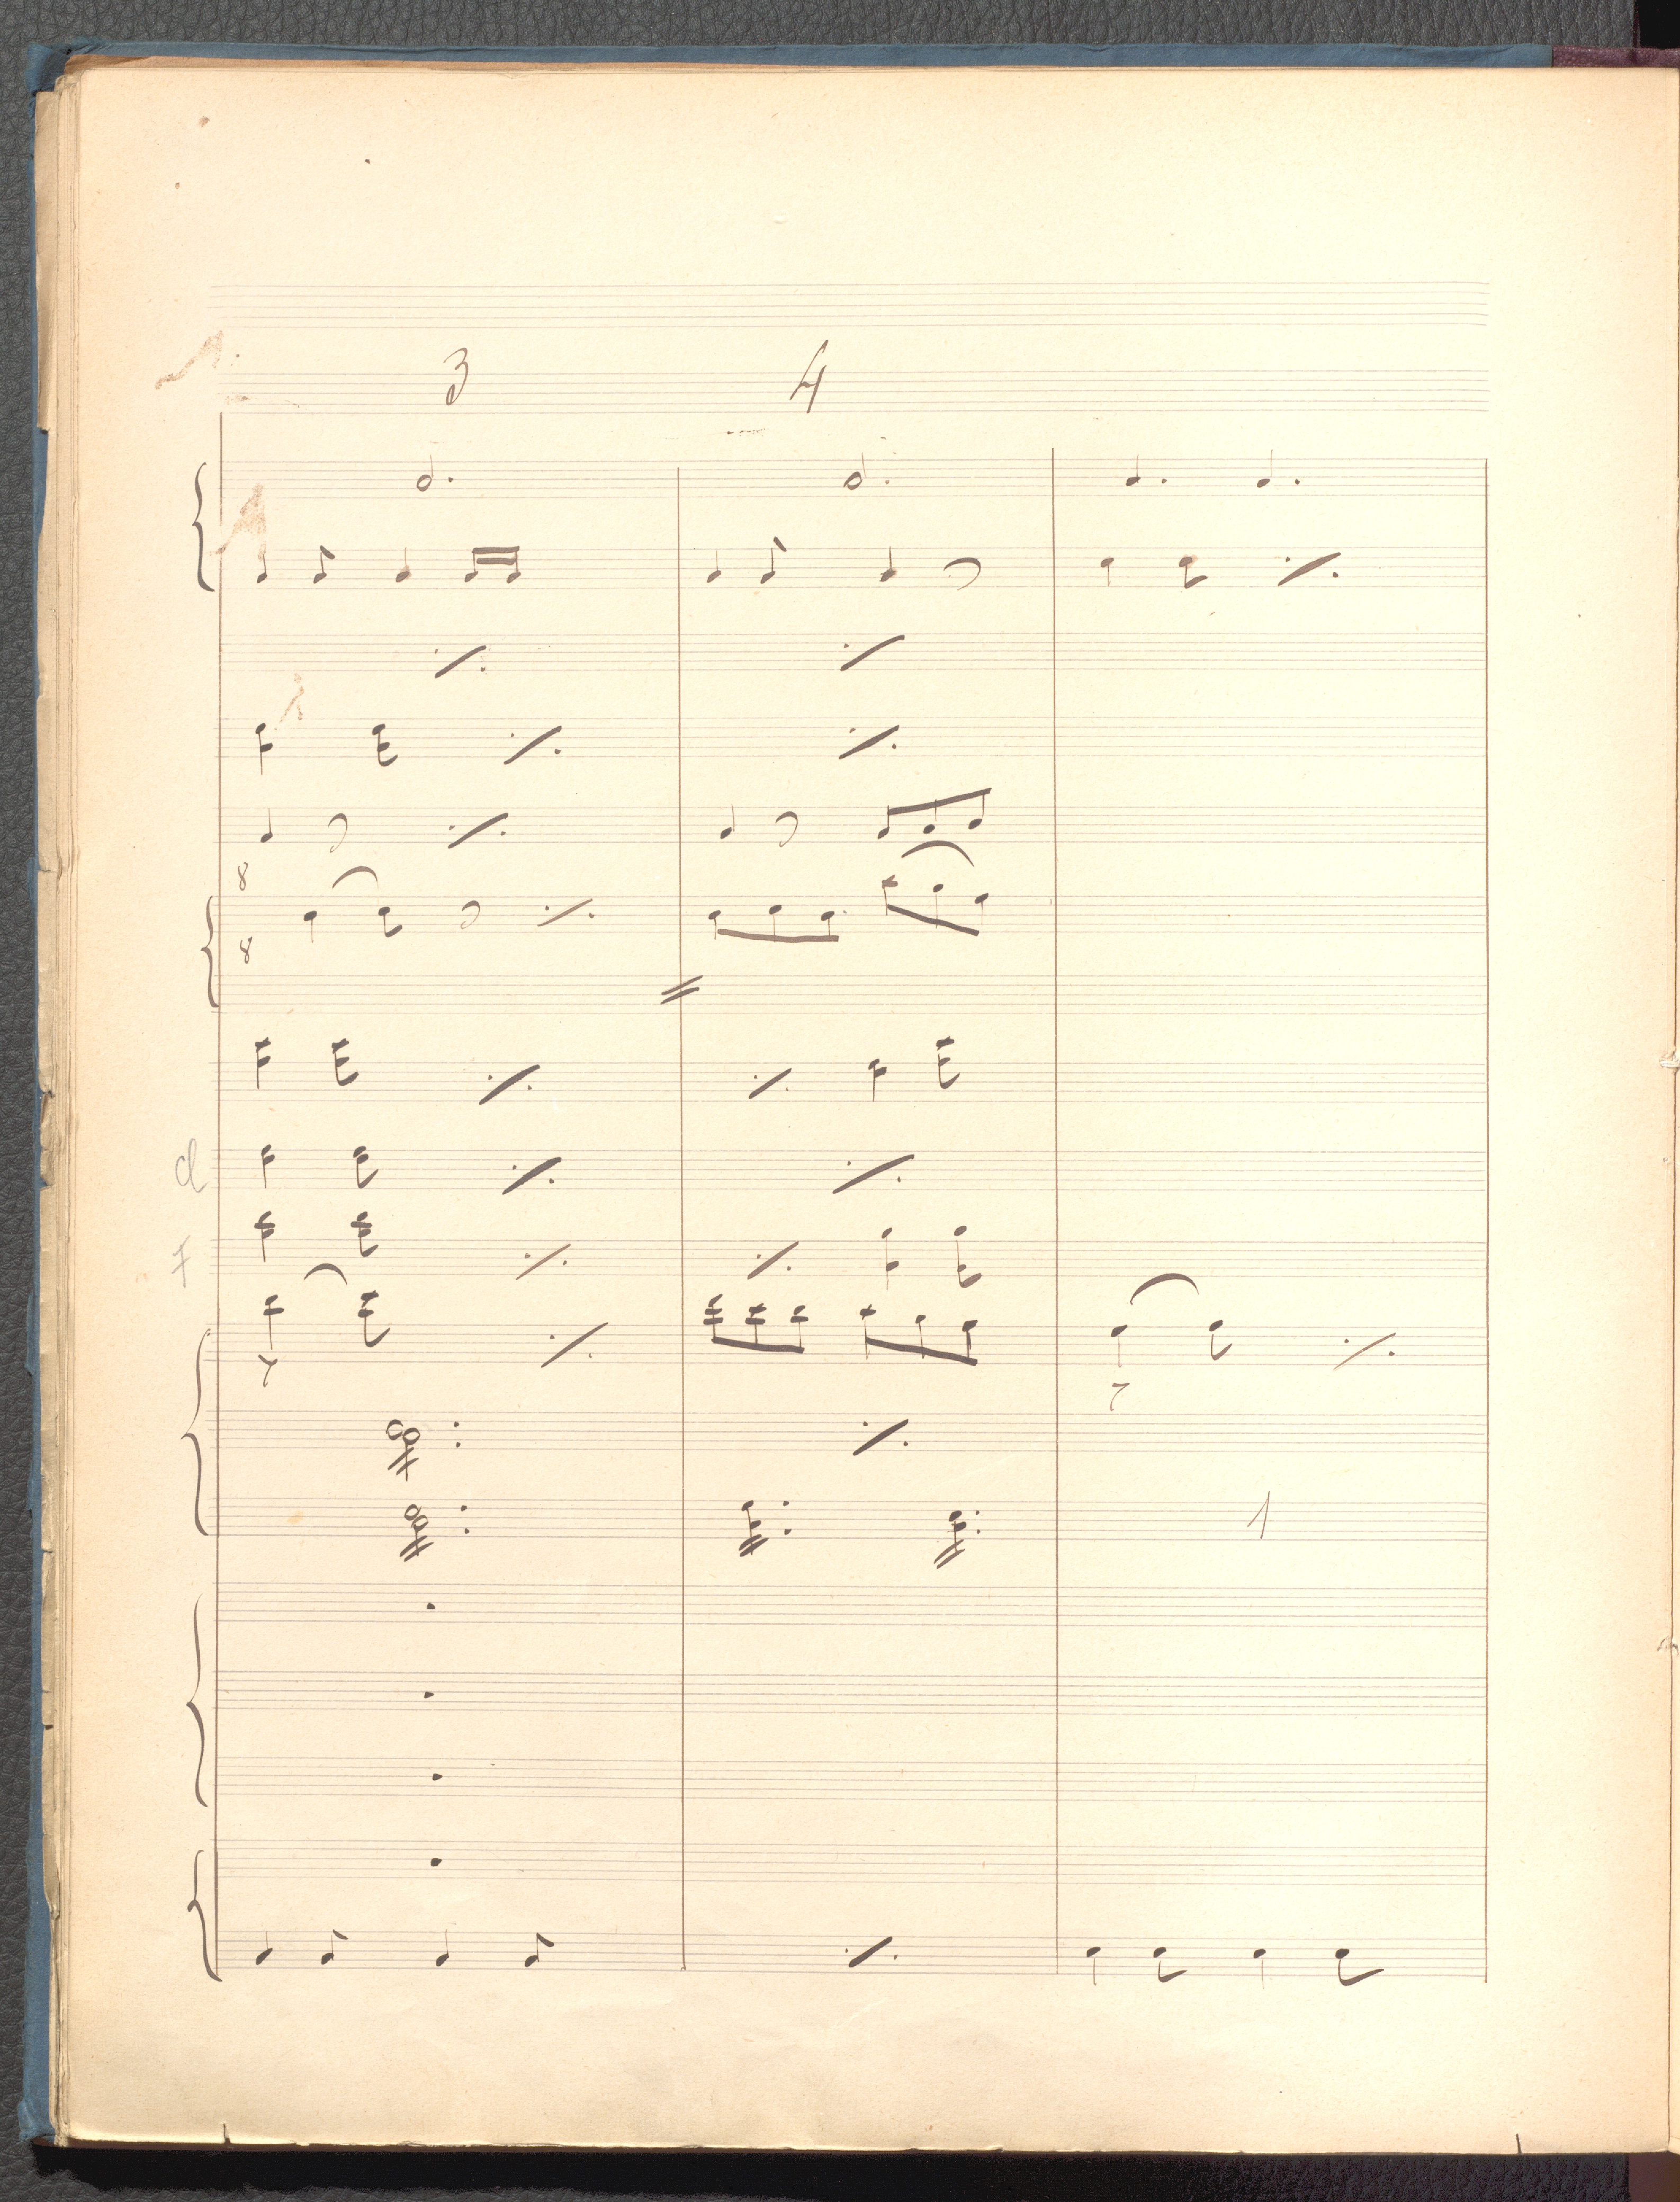 3 4
8
8
Cl
F
1